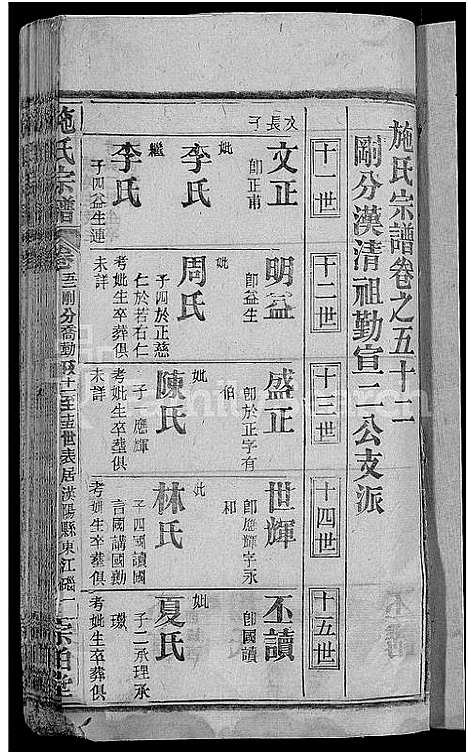 施氏宗譜卷之五十二
剛分漢清祖勤宣二公支派
十一世
十二世
十三世
十四世
十五世
次長子
文正
即正甫
妣
李氏
繼
李氏
子四益生連
明益
即益生
妣
周氏
子四於正慈
仁於若右仁
考妣生卒葬俱
未詳
盛正
即於正字有
伯
妣
陳氏
子一應輝
考妣生卒塟俱
未詳
世輝
即應輝字永
和
妣
林氏
子四國讀國
言國講國勷
考妣生卒塟俱
丕讀
即國讀
妣
夏氏
子二承理承
璥
考妣生卒葬俱
施氏宗譜
剛分喬勤
至十五世表居漢陽縣東江磯
一